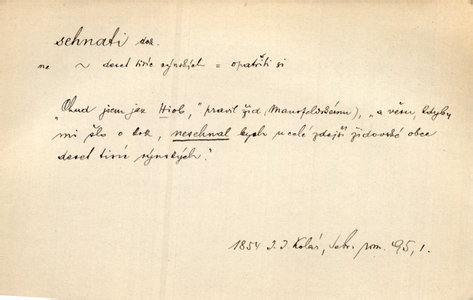 sehnati dok.
ne ~ deset tisíc rýnských = opatřiti si
"Chud jsem jak Hiob," pravil žid, Mansfeldskému), "a věru, kdyby
mi šlo o krk, nesehnal bych u celé zdejší židovské obce
deset tisíc rýnských."
1854 J. J. Kolár, Sebr. rom. 95, 1.